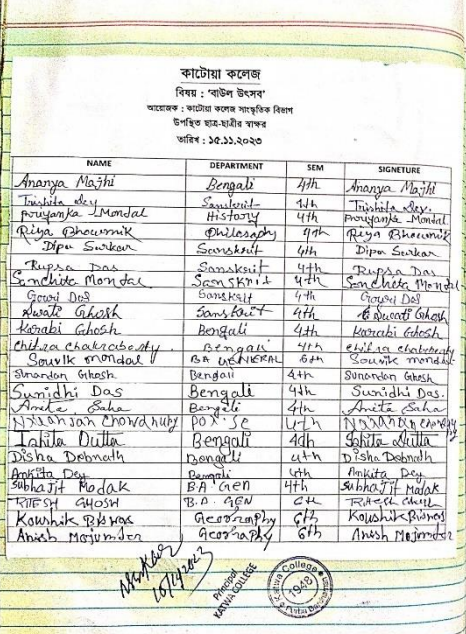 কাটোয়া কলেজ
বিষয় : 'বাউল উৎসব'
আয়োজক : কাটোয়া কলেজ সাংস্কৃতিক বিভাগ
উপস্থিত ছাত্র-ছাত্রীর স্বাক্ষর
তারিখ : ১৫.১১.২০২৩
NAME DEPARTMENT SEM SIGNETURE
Ananya Majhi Bengali 4th Ananya Majhi
Trishita Dey Sanskrit 4th Trishita Dey.
Priyanka Mondal History 4th Priyanka Mondal
Riya Bhowmik Philosophy 4th Riya Bhowmik
Dipa Sarkar Sanskrit 4th Dipa Sarkar
Rupsa Das Sanskrit 4th Rupsa Das
Sanchita Mondal Sanskrit 4th Sanchita Mondal
Gouri Das Sanskrit 4th Gouri Das
Swati Ghosh Sanskrit 4th Swati Ghosh
Karabi Ghosh Bengali 4th Karabi Ghosh
Chitra Chakraborty Bengali 4th Chitra Chakraborty
Souvik Mondal BA GENERAL 6th Souvik Mondal
Sunandan Ghosh Bengali 4th Sunandan Ghosh
Sunidhi Das Bengali 4th Sunidhi Das.
Anita Saha Bengali 4th Anita Saha
Niranjan Chowdhury Pol.sc 4th
Ishita Dutta Bengali 4th Ishita Dutta
Disha Debnath Bengali 4th Disha Debnath
Ankita Dey Bengali 4th Ankita Dey
Subhajit Modak B.A GEN 4th Subhajit Modak
RITESH GHOSH B.A. GEN 6th
Koushik Biswas Geography 6th Koushik Biswas
Anish Majumder Geography 6th Anish Majumder
Principal
KATWA COLLEGE
Katwa College
1948